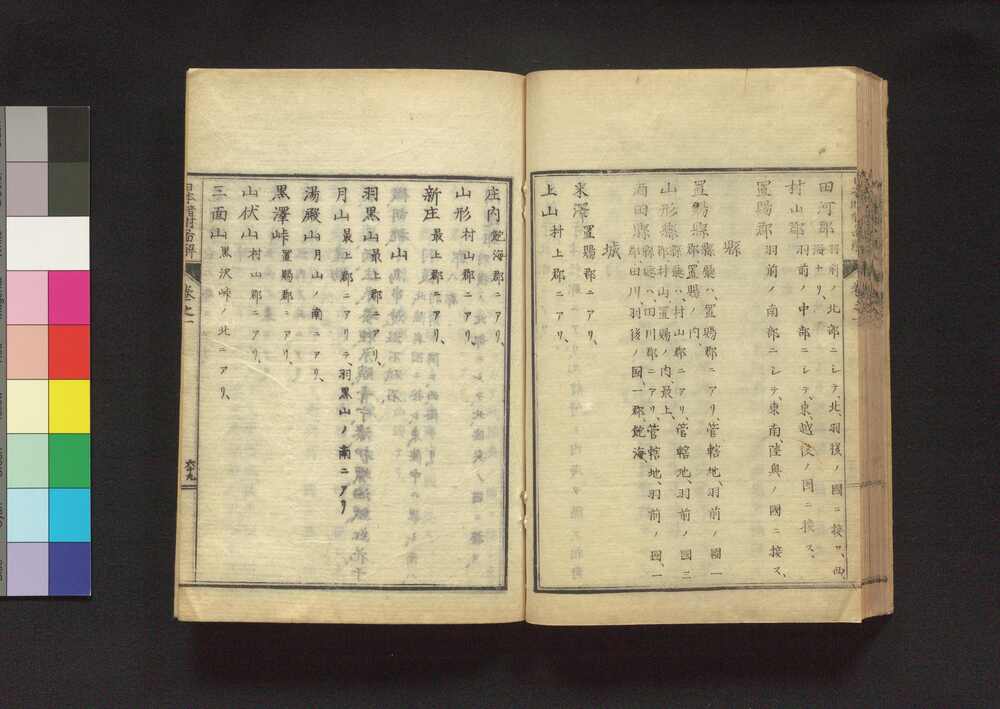 田河郡 羽前ノ北部ニシテ、北羽後ノ國ニ接シ、西、
海ナリ、
村山郡 羽前ノ中部ニシテ、東、越後ノ国ニ接ス、
置賜郡 羽前ノ南部ニシテ、東南、陸奥ノ國ニ接ス、
縣
置賜縣 縣廳ハ、置賜郡ニアリ、管轄地、羽前ノ國一
郡、置賜ノ内、
山形縣 縣廳ハ、村山郡ニアリ、管轄地、羽前ノ國三
郡、村山、置賜ノ内、最上、
酒田縣 縣廳ハ、田川郡ニアリ、管轄地、羽前ノ國、一
郡、田川、羽後ノ國一郡、飽海
城
米澤 置賜郡ニアリ、
上山 村上郡ニアリ、
庄内 飽海郡ニアリ、
山形 村山郡ニアリ、
新庄 最上郡ニアリ、
山
羽黒山 最上郡ニアリ、
月山 最上郡ニアリテ羽黒山ノ南ニアリ
湯殿山 月山ノ南ニアリ、
黒澤峠 置賜郡ニアリ、
山伏山 村山郡ニアリ、
三面山 黒沢峠ノ北ニアリ、
卷之一
六十九